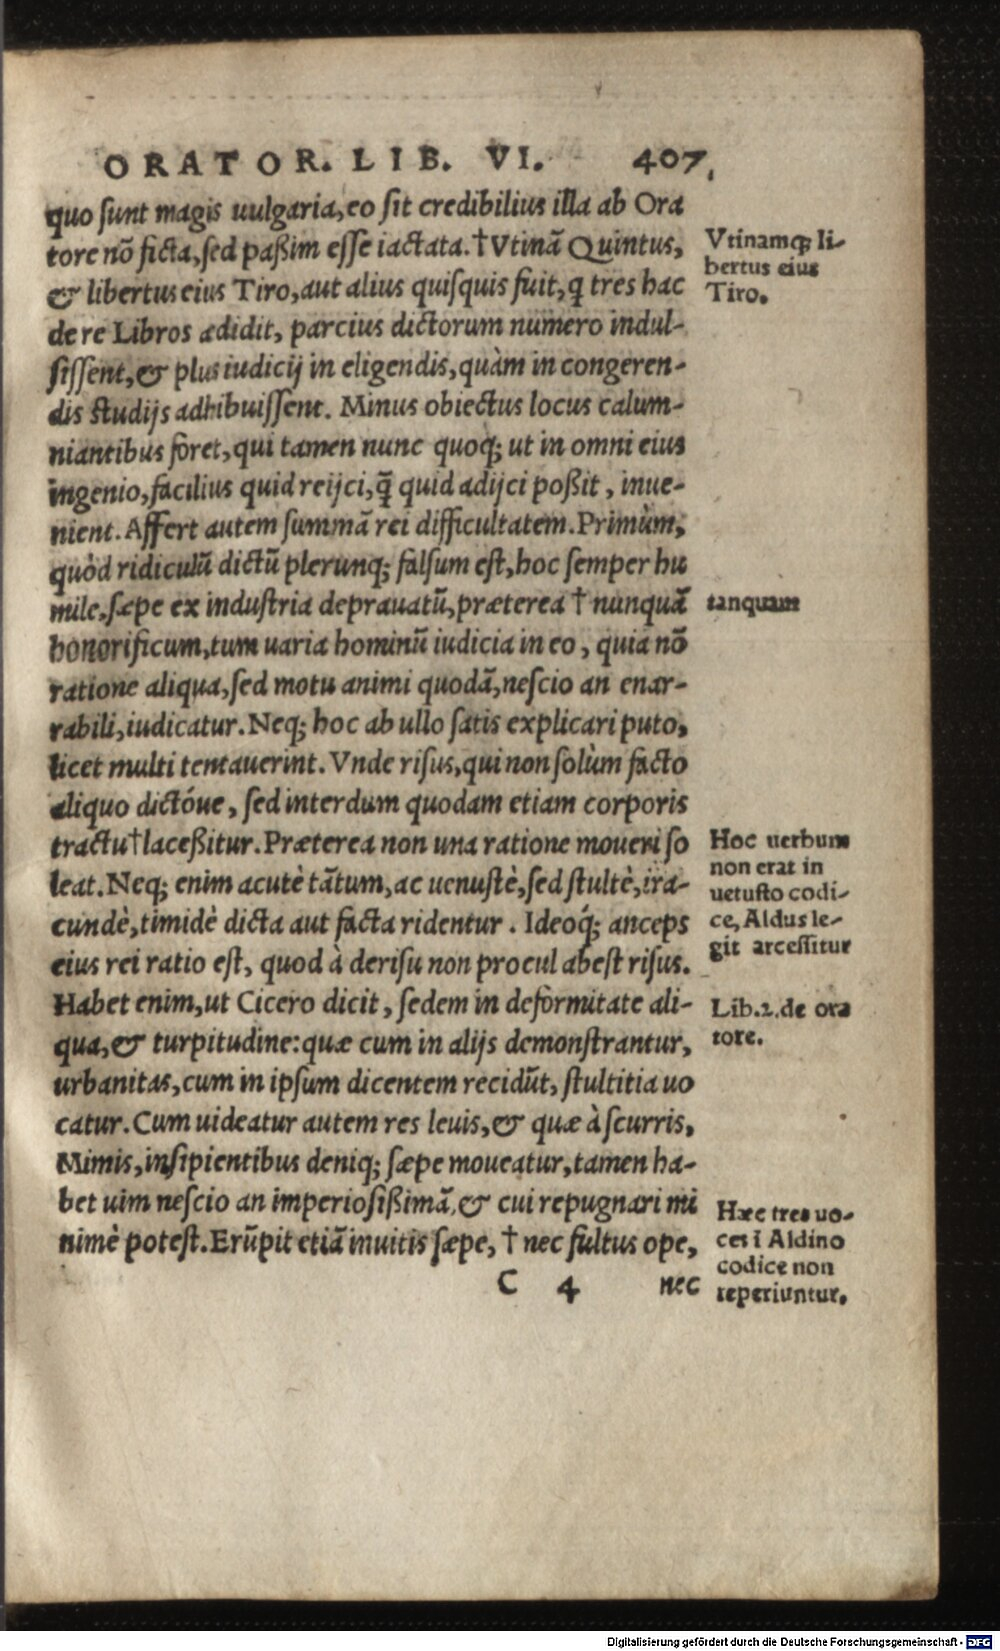 ORATOR. LIB. VI. 407
quo sunt magis uulgaria, eo sit credibilius illa ab Ora
tore nõ ficta, sed paßim esse iactata. † Vtinã Quintus,
& libertus eius Tiro, aut alius quisquis fuit, q̃ tres hac
de re Libros ædidit, parcius dictorum numero indul-
sissent, & plus iudicij in eligendis, quàm in congeren-
dis studijs adhibuissent. Minus obiectus locus calum-
niantibus foret, qui tamen nunc quoq; ut in omni eius
ingenio, facilius quid reijci, q̃ quid adijci poßit, inue-
nient. Affert autem summã rei difficultatem. Primùm,
quòd ridiculũ dictũ plerunq; falsum est, hoc semper hu
mile, sæpe ex industria deprauatũ, præterea † nunquã
honorificum, tum uaria hominũ iudicia in eo, quia nõ
ratione aliqua, sed motu animi quodã, nescio an enar-
rabili, iudicatur. Neq; hoc ab ullo satis explicari puto,
licet multi tentauerint. Vnde risus, qui non solùm facto
aliquo dictóue, sed interdum quodam etiam corporis
tractu † laceßitur. Præterea non una ratione moueri so
leat. Neq; enim acutè tãtum, ac uenustè, sed stultè, ira-
cundè, timidè dicta aut facta ridentur. Ideoq́; anceps
eius rei ratio est, quod à derisu non procul abest risus.
Habet enim, ut Cicero dicit, sedem in deformitate ali-
qua, & turpitudine: quæ cum in alijs demonstrantur,
urbanitas, cum in ipsum dicentem recidũt, stultitia uo
catur. Cum uideatur autem res leuis, & quæ à scurris,
Mimis, insipientibus deniq; sæpe moueatur, tamen ha-
bet uim nescio an imperiosißimã, & cui repugnari mi
nimè potest. Erũpit etiã inuitis sæpe, † nec fultus ope,
C 4 nec
Vtinamq; li-
bertus eius
Tiro.
tanquam
Hoc uerbum
non erat in
uetusto codi-
ce, Aldus le-
git arcessitur
Lib. 2. de ora
tore.
Hæc tres uo-
ces ĩ Aldino
codice non
reperiuntur.
Digitalisierung gefördert durch die Deutsche Forschungsgemeinschaft - DFG